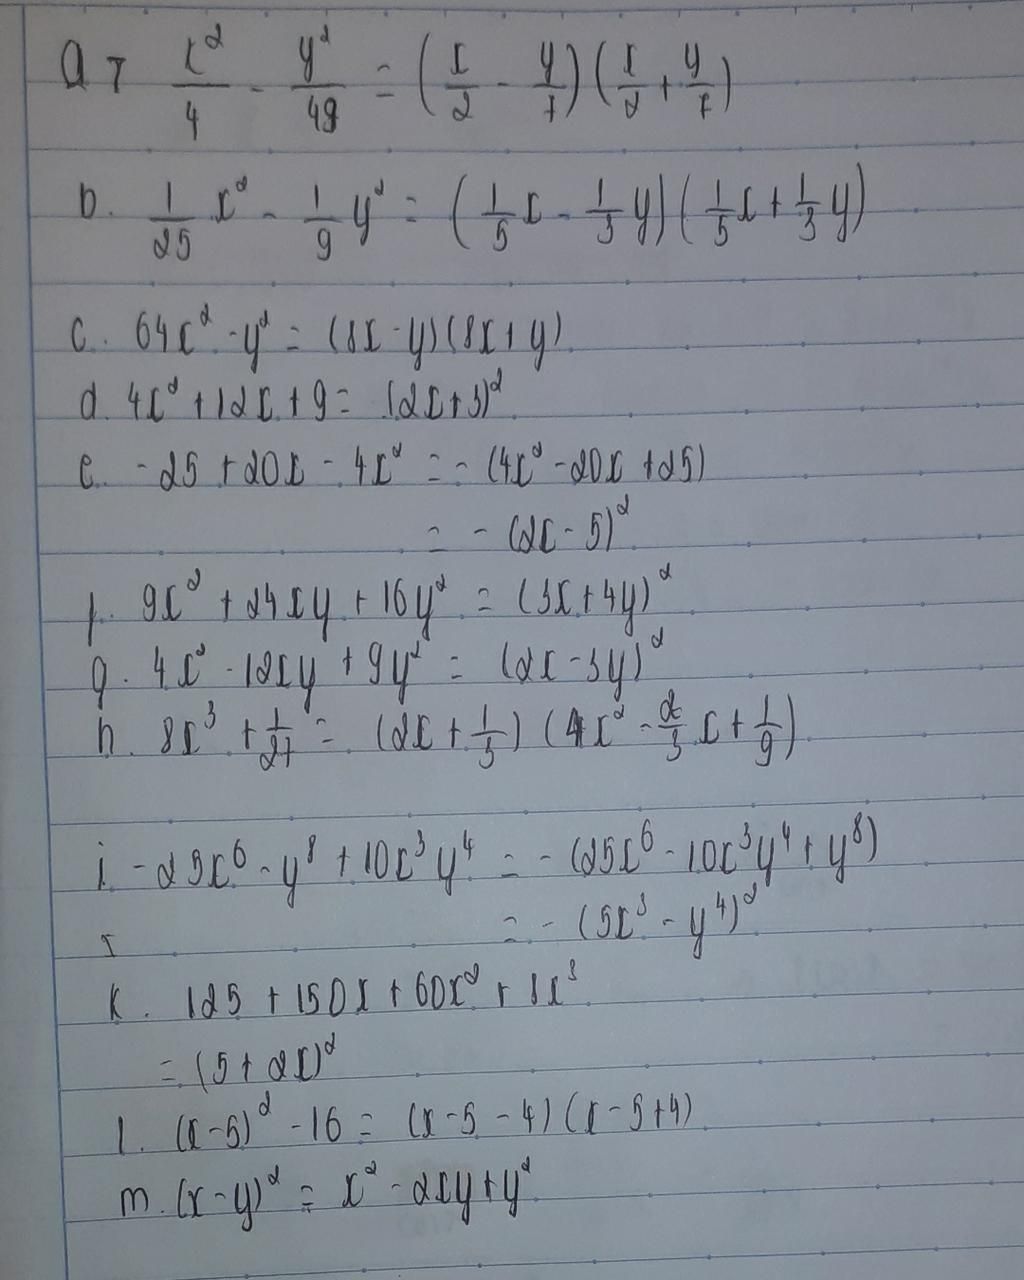 a, x²/4 - y²/49 = (x/2 - y/7)(x/2 + y/7)
b. 1/25 x² - 1/9 y² = (1/5 x - 1/3 y)(1/5 x + 1/3 y)
c. 64x² - y² = (8x - y)(8x + y)
d. 4x² + 12x + 9 = (2x + 3)²
e. -25 + 20x - 4x² = -(4x² - 20x + 25)
= -(2x - 5)²
f. 9x² + 24xy + 16y² = (3x + 4y)²
g. 4x² - 12xy + 9y² = (2x - 3y)²
h. 8x³ + 1/27 = (2x + 1/3)(4x² - 2/3 x + 1/9)
i. -25x⁶ - y⁸ + 10x³y⁴ = -(25x⁶ - 10x³y⁴ + y⁸)
= -(5x³ - y⁴)²
k. 125 + 150x + 60x² + 8x³
= (5 + 2x)²
l. (x - 5)² - 16 = (x - 5 - 4)(x - 5 + 4)
m. (x - y)² = x² - 2xy + y²